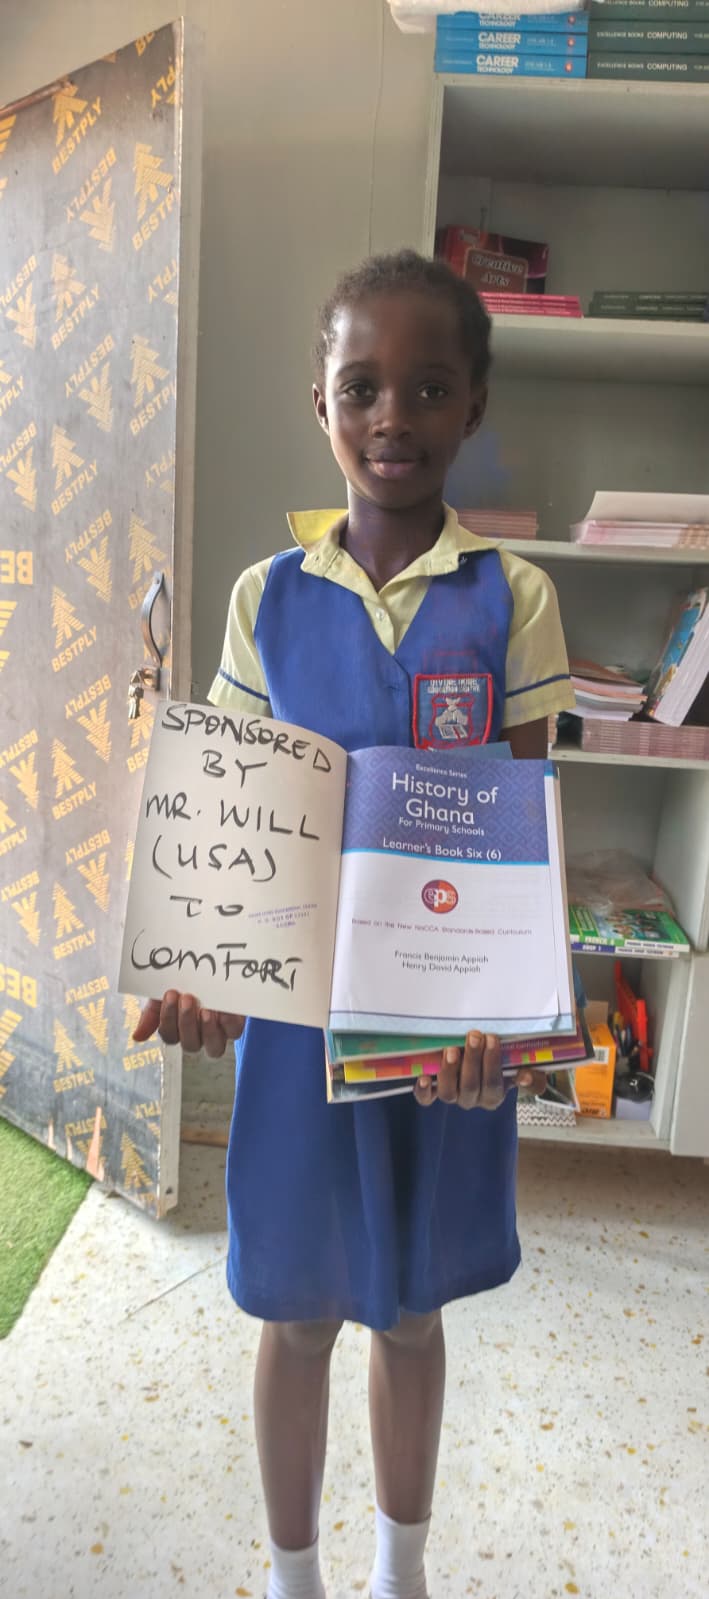 CAREER
TECHNOLOGY
EXCELLENCE BOOKS COMPUTING
CAREER
TECHNOLOGY
EXCELLENCE BOOKS COMPUTING
CAREER
TECHNOLOGY
EXCELLENCE BOOKS COMPUTING
Creative
Arts
BESTPLY
BESTPLY
BESTPLY
BESTPLY
BESTPLY
BESTPLY
BESTPLY
BESTPLY
EDUCATION CENTRE
SPONSORED
BY
MR. WILL
(USA)
TO
COMFORT
Excellence Series
History of
Ghana
For Primary Schools
Learner's Book Six (6)
eps
Based on the New NaCCA Standards-Based Curriculum
Francis Benjamin Appiah
Henry David Appiah